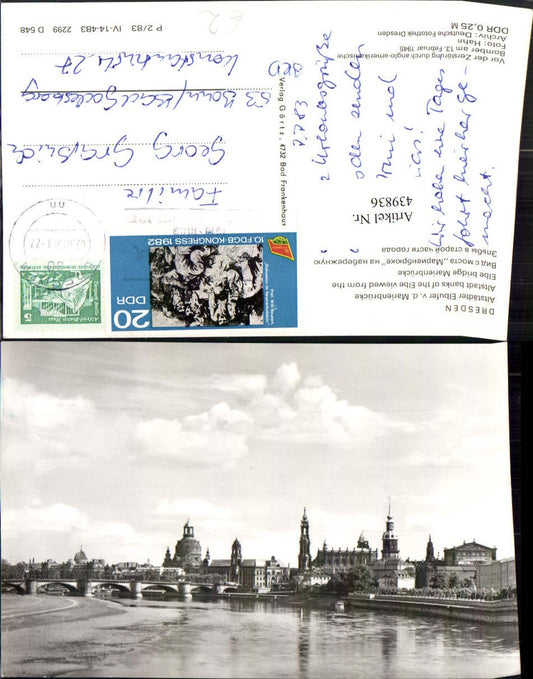 DRESDEN
Altstädter Elbufer v. d. Marienbrücke
Altstadt banks of the Elbe viewed from the
Elbe bridge Marienbrücke
Вид с моста „Мариенбрюке" на набережную
Эльбы в старой части города
Artikel Nr.
439836
Wir haben eine Tages
fahrt hierher ge-
macht.
" Urlaubsgrüße
senden
und
Vor der Zerstörung durch anglo-amerikanische
Bomber am 13. Februar 1945
Foto: Hahn
Archiv: Deutsche Fotothek Dresden
DDR 0,25 M
Verlag Görtz, 4732 Bad Frankenhausen
10. FDGB-KONGRESS 1982
20
DDR
5
Familie
Georg
53 Bonn/Bad Godesberg
Konstantinstr. 27
BRD
P 2/83 IV-14-483 2299 D 548